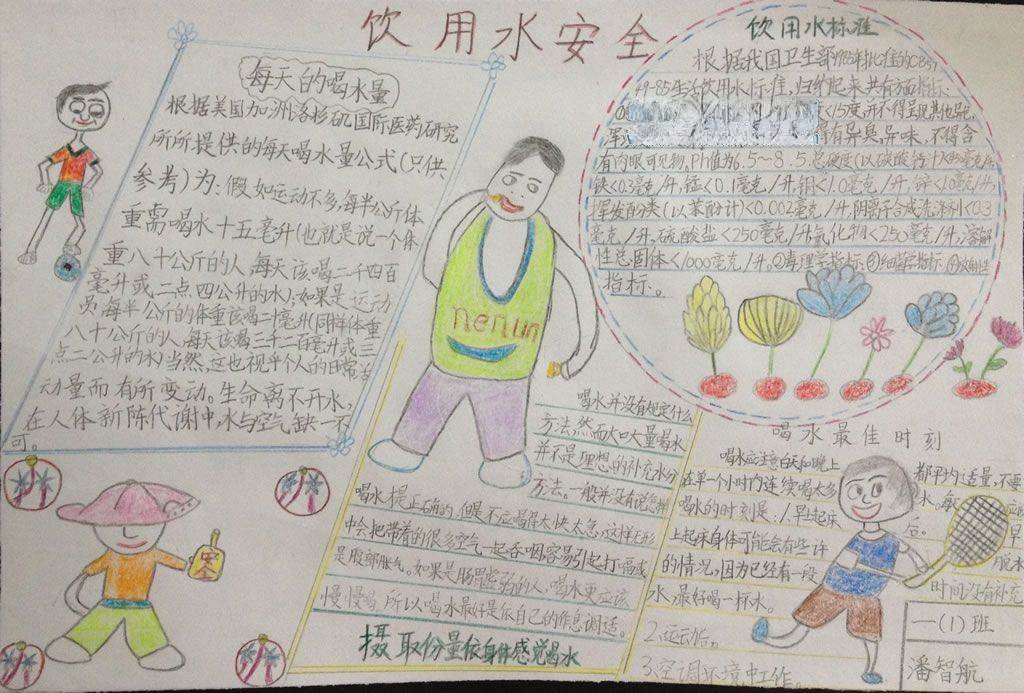 饮用水安全
每天的喝水量
根据美国加洲洛杉矶国际医药研究
所所提供的每天喝水量公式(只供
参考)为:假如运动不多,每半公斤体
重需喝水十五毫升(也就是说一个体
重八十公斤的人,每天该喝二千四百
毫升或二点四公升的水);如果是运动
员,每半公斤的体重该喝二十毫升(同样体重
八十公斤的人,每天该喝三千二百毫升或三
点二公升的水)当然,这也视乎个人的日常活
动量而有所变动。生命离不开水,
在人体新陈代谢中,水与空气缺一不
可。
饮用水标准
根据我国卫生部
49-85生活饮用水标准,归纳起来共有方面指标:
<15度,并不得呈现其他
有异臭、异味,不得含
有肉眼可见物,PH值为6.5~
铁<0.3毫克/升,锰<0.1毫克/升,铜<1.0毫克/升,锌<1.0毫克/升,
挥发酚类(以苯酚计)<0.002毫克/升,阴离子合成洗涤剂<0.3
毫克/升,硫酸盐<250毫克/升,氯化物<250毫克/升,溶解
性总固体<1000毫克/升。②毒理学指标③细菌学指标④放射性
指标。
nenun
喝水并没有规定什么
方法,然而大口大量喝水
并不是理想的补充水分
方法。一般并没有说怎样
喝水是正确的,但是不应喝得太快太急,这样无形
中会把带着的很多空气一起吞咽,容易引起打嗝或
是腹部胀气。如果是肠胃虚弱的人,喝水更应该
慢慢喝。所以喝水最好是依自己的作息调适。
摄取份量依身体感觉喝水
喝水最佳时刻
喝水应注意白天和晚上
都平均适量,不要
在单一个小时内连续喝太多
水。每
喝水的时刻是:1早上起床
早
上起床身体可能会有些许
脱水
的情况,因为已经有一段
时间没有补充
水,最好喝一杯水。
2.运动后。
3.空调环境中工作。
安全
一(1)班
潘智航